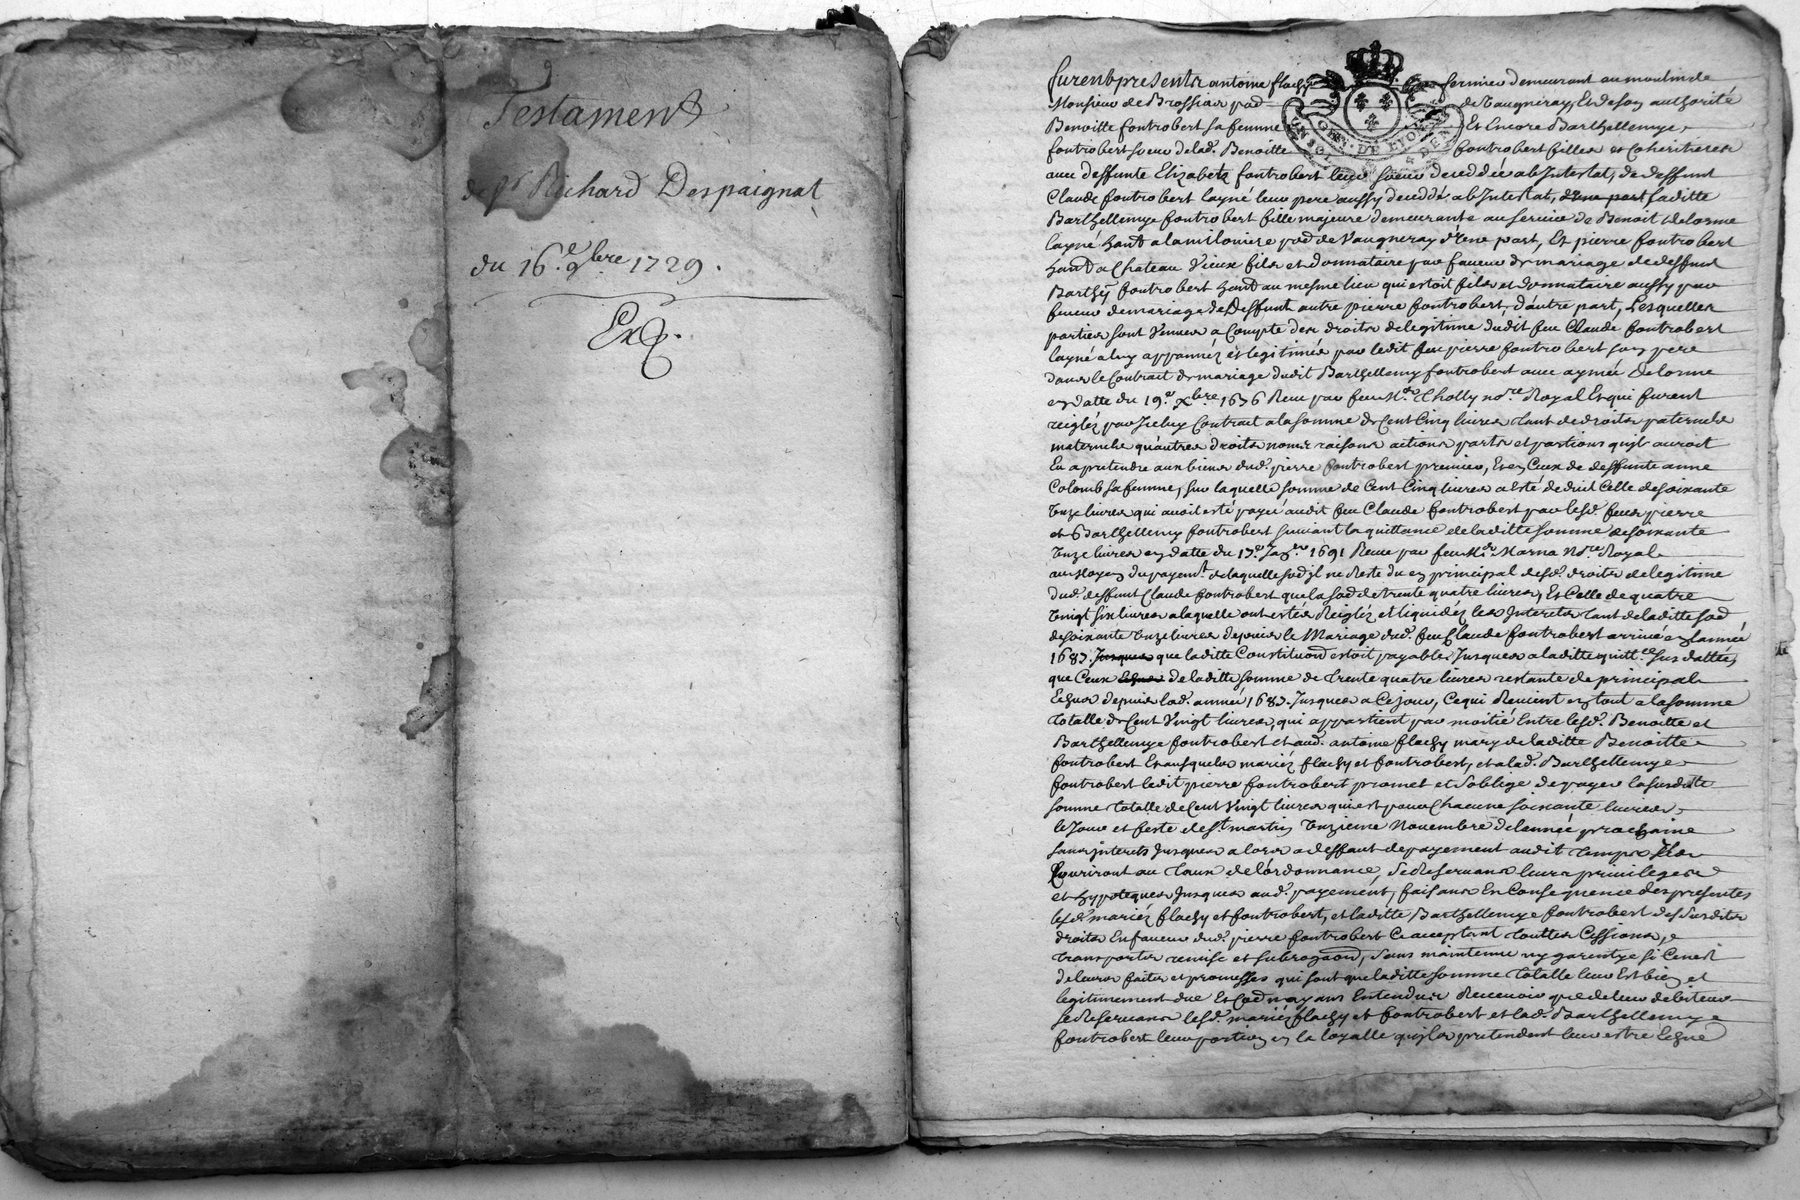 Testament
de Sr Richard Despaignat
du 16.e 9bre 1729.
Exp.
furent presents antoine flachy fermier demeurant au moulin de
Monsieur de Brossias de Vaugneray, Et de son authorité
Benoitte fontrobert sa femme Et Encore Barthellemye
fontrobert soeur de lad. Benoitte fontrobert filles et Coheritieres
avec deffunte Elizabeth fontrobert leur soeur deceddée ab Intestat, de deffunt
Claude fontrobert layné leur pere aussy deceddé ab Intestat, d'une part laditte
Barthellemye fontrobert fille majeure demeurante au service de Benoit delorme
layné hant a la miloniere de Vaugneray d'Une part, Et pierre fontrobert
hant a Chateau Vieux fils et donnataire par faveur de mariage de deffunt
Barthy fontrobert hant au mesme lieu qui estoit fils et donnataire aussy par
faveur de mariage de Deffunt autre pierre fontrobert, d'autre part, Lesquelles
parties sont Venues a Compte des droits de legitime dudit feu Claude fontrobert
layné a luy appannéz et legitimés par ledit feu pierre fontrobert son pere
dans le Contrait de mariage dudit Barthellemy fontrobert avec aymée delorme
en datte du 19.e xbre 1676 Receu par feu Me Tholly nore Royal Et qui furent
reigléz par Iceluy Contrait a la somme de Cent Cinq livres tant de droits paternels
maternels qu'autres droits noms raisons actions parts et portions qu'il auroit
Eu a pretendre aux biens dud. pierre fontrobert premier, Et en Ceux de deffunte anne
Colomb sa femme, sur laquelle somme de Cent Cinq livres a esté deduit Celle de soixante
Unze livres qui avoit esté payée audit feu Claude fontrobert par lesd. feus pierre
et Barthellemy fontrobert suivant la quittance de laditte somme de soixante
Unze livres en datte du 17.e 1691 Receue par feu Me Marna Nore Royal
au Moyen du payemt de laquelle il ne Reste du en principal desd. droits de legitime
dud. deffunt Claude fontrobert que la de trente quatre livres, Et Celle de quatre
Vingt six livres a laquelle ont estés Reigléz et liquidéz les Interets tant de laditte
de soixante Unze livres depuis le Mariage dud. feu Claude fontrobert arrivé en l'année
1687. que laditte Constitution estoit payable Jusques a laditte quittce sus dattée,
que Ceux de laditte somme de Trente quatre livres restante de principal
Echus depuis lad. année 1687. Jusques a Ce jour, Ce qui Revient en tout a la somme
totalle de Cent Vingt livres, qui appartient par moitié Entre lesd. Benoitte et
Barthellemye fontrobert Et aud. antoine flachy mary de laditte Benoitte
fontrobert Et ausquels mariéz flachy et fontrobert, et a lad. Barthellemye
fontrobert ledit pierre fontrobert promet et s'oblige de payer la susditte
somme totalle de Cent Vingt livres qui est pour Chacune soixante livres,
le Jour et feste de St martin Unzieme Novembre de l'année prochaine
sans interets Jusques alors a deffaut de payement audit temps Ils
Couriront au Taux de l'ordonnance, se Reservans leurs privileges
et hypoteques Jusques aud. payement, faisans En Consequence des presentes
lesd. mariéz flachy et fontrobert, et laditte Barthellemye fontrobert des susdits
droits En faveur dud. pierre fontrobert Ce acceptant touttes Cessions,
transports remise et subrogaon, sans maintenue ny garentye si Ce n'est
de leurs faits et promesses qui sont que laditte somme totalle leur Est bien et
legitimement due Et n'ayans Entendus Recevoir que de leur debiteur
se Reservans lesd. mariéz flachy et fontrobert et lad. Barthellemye
fontrobert leur portion en la loyalle qu'ils pretendent leur estre Echue